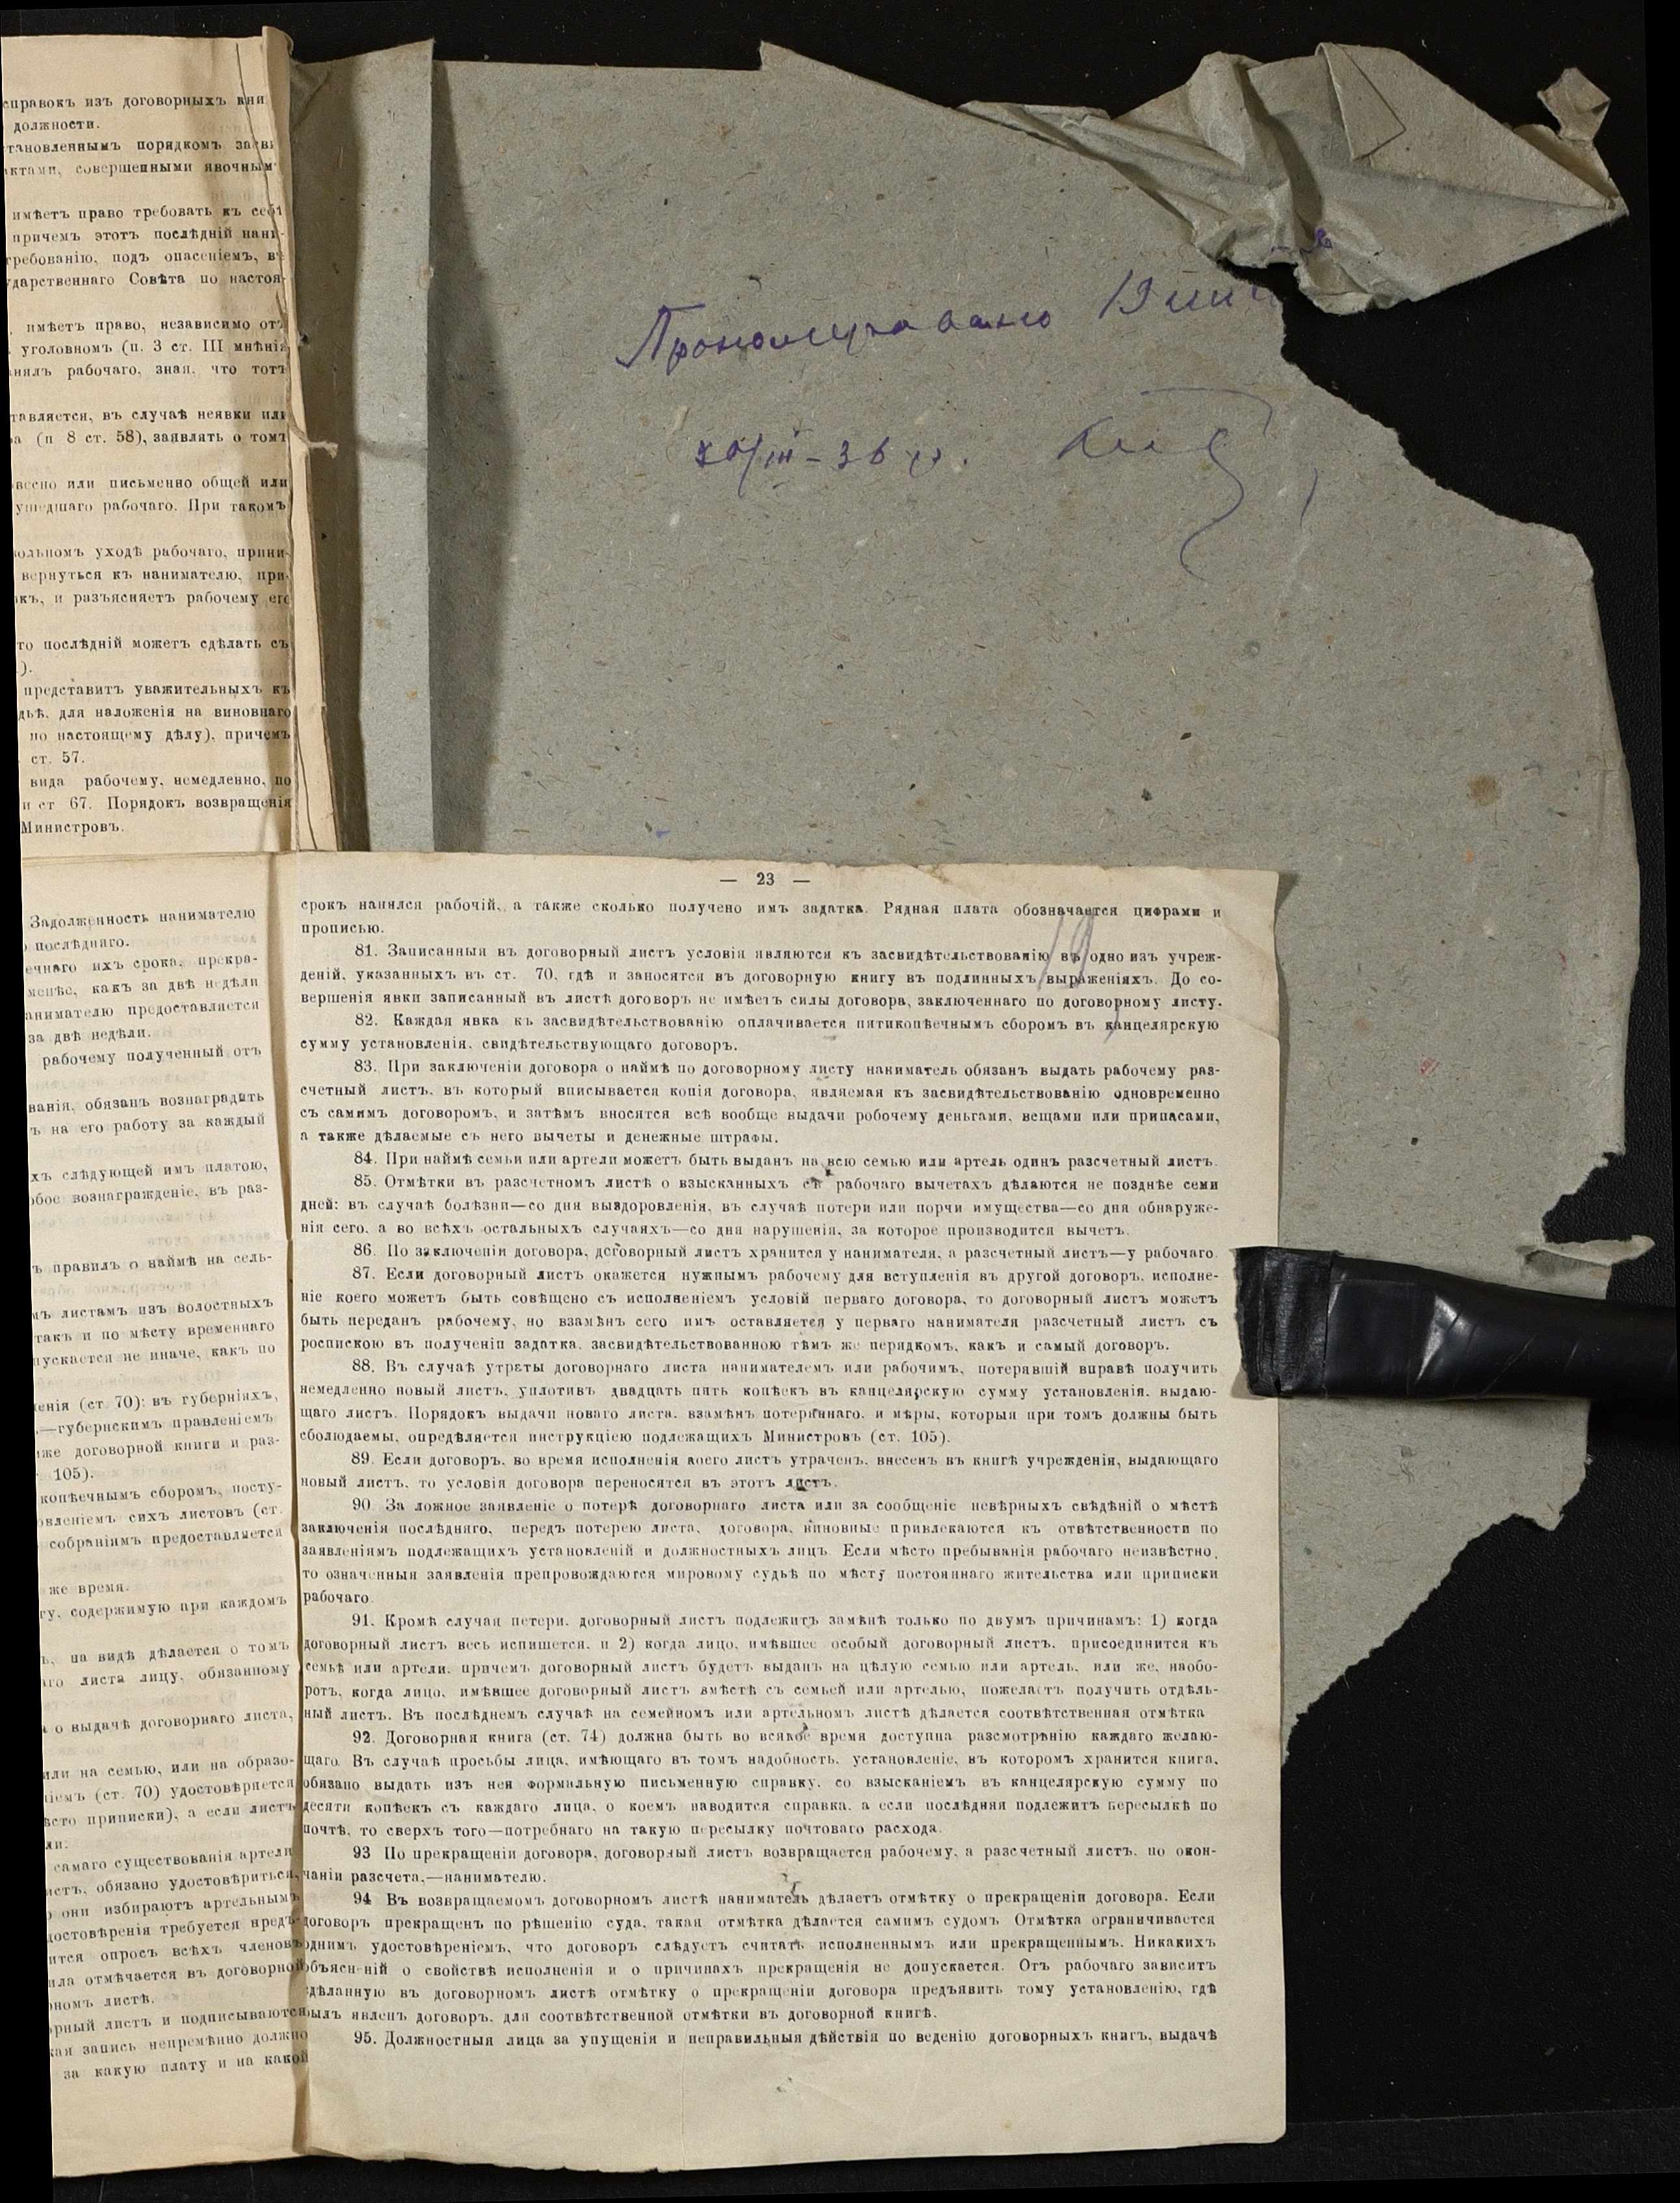 справокъ изъ договорныхъ кни
должности.
тановленнымъ порядкомъ засви
ктами, совершенными явочнымъ
имѣетъ право требовать къ себѣ
причемъ этотъ послѣдній нани-
требованію, подъ опасеніемъ, въ
ударственнаго Совѣта по настоя-
имѣетъ право, независимо отъ
уголовномъ (п. 3 ст. III мнѣнія
нялъ рабочаго, зная, что тотъ
тавляется, въ случаѣ неявки или
а (п 8 ст. 58), заявлять о томъ
весно или письменно общей или
ушедшаго рабочаго. При такомъ
ольномъ уходѣ рабочаго, прини-
вернуться къ нанимателю, при-
къ, и разъясняетъ рабочему его
то послѣдній можетъ сдѣлать съ
.).
представитъ уважительныхъ къ
дьѣ, для наложенія на виновнаго
по настоящему дѣлу), причемъ
ст. 57.
вида рабочему, немедленно, по
и ст 67. Порядокъ возвращенія
Министровъ.
Пронумеровано 19
/III-36 г.
Задолженность нанимателю
послѣдняго.
ечнаго ихъ срока, прекра-
менѣе, какъ за двѣ недѣли
анимателю предоставляется
за двѣ недѣли.
рабочему полученный отъ
ванія, обязанъ вознаградить
ъ на его работу за каждый
хъ слѣдующей имъ платою,
обое вознагражденіе, въ раз-
ъ правилъ о наймѣ на сель-
мъ листамъ изъ волостныхъ
такъ и по мѣсту временнаго
пускается не иначе, какъ по
енія (ст. 70): въ губерніяхъ,
—губернскимъ правленіемъ
же договорной книги и раз-
105).
копѣечнымъ сборомъ, посту-
овленіемъ сихъ листовъ (ст.
собраніямъ предоставляется
же время.
гу, содержимую при каждомъ
ъ, на видѣ дѣлается о томъ
го листа лицу, обязанному
а о выдачѣ договорнаго листа,
или на семью, или на образо-
ніемъ (ст. 70) удостовѣряется
ѣсто приписки), а если листъ
ли.
самаго существованія артели
истъ, обязано удостовѣриться,
они избираютъ артельнымъ
достовѣренія требуется предъ-
ится опросъ всѣхъ членовъ
ила отмѣчается въ договорной
номъ листѣ.
рный листъ и подписываются
кая запись непремѣнно должно
за какую плату и на какой
— 23 —
19
срокъ нанялся рабочій, а также сколько получено имъ задатка. Рядная плата обозначается цифрами и
прописью.
81. Записанныя въ договорный листъ условія являются къ засвидѣтельствованію въ одно изъ учреж-
деній, указанныхъ въ ст. 70, гдѣ и заносятся въ договорную книгу въ подлинныхъ выраженіяхъ. До со-
вершенія явки записанный въ листѣ договоръ не имѣетъ силы договора, заключеннаго по договорному листу.
82. Каждая явка къ засвидѣтельствованію оплачивается пятикопѣечнымъ сборомъ въ канцелярскую
сумму установленія, свидѣтельствующаго договоръ.
83. При заключеніи договора о наймѣ по договорному листу наниматель обязанъ выдать рабочему раз-
счетный листъ, въ который вписывается копія договора, являемая къ засвидѣтельствованію одновременно
съ самимъ договоромъ, и затѣмъ вносятся всѣ вообще выдачи робочему деньгами, вещами или припасами,
а также дѣлаемые съ него вычеты и денежные штрафы.
84. При наймѣ семьи или артели можетъ быть выданъ на всю семью или артель одинъ разсчетный листъ.
85. Отмѣтки въ разсчетномъ листѣ о взысканныхъ съ рабочаго вычетахъ дѣлаются не позднѣе семи
дней: въ случаѣ болѣзни—со дня выздоровленія, въ случаѣ потери или порчи имущества—со дня обнаруже-
нія сего, а во всѣхъ остальныхъ случаяхъ—со дня нарушенія, за которое производится вычетъ.
86. По заключеніи договора, договорный листъ хранится у нанимателя, а разсчетный листъ—у рабочаго.
87. Если договорный листъ окажется нужнымъ рабочему для вступленія въ другой договоръ, исполне-
ніе коего можетъ быть совѣщено съ исполненіемъ условій перваго договора, то договорный листъ можетъ
быть переданъ рабочему, но взамѣнъ сего имъ оставляется у перваго нанимателя разсчетный листъ съ
роспискою въ полученіи задатка, засвидѣтельствованною тѣмъ же перядкомъ, какъ и самый договоръ.
88. Въ случаѣ утраты договорнаго листа нанимателемъ или рабочимъ, потерявшій вправѣ получить
немедленно новый листъ, уплотивъ двадцать пять копѣекъ въ канцелярскую сумму установленія, выдаю-
щаго листъ. Порядокъ выдачи новаго листа, взамѣнъ потеряннаго, и мѣры, которыя при томъ должны быть
сболюдаемы, опредѣляется инструкціею подлежащихъ Министровъ (ст. 105).
89. Если договоръ, во время исполненія коего листъ утраченъ, внесенъ въ книгѣ учрежденія, выдающаго
новый листъ, то условія договора переносятся въ этотъ листъ.
90. За ложное заявленіе о потерѣ договорнаго листа или за сообщеніе невѣрныхъ свѣдѣній о мѣстѣ
заключенія послѣдняго, передъ потерею листа, договора, виновные привлекаются къ отвѣтственности по
заявленіямъ подлежащихъ установленій и должностныхъ лицъ. Если мѣсто пребыванія рабочаго неизвѣстно,
то означенныя заявленія препровождаются мировому судьѣ по мѣсту постояннаго жительства или приписки
рабочаго.
91. Кромѣ случая петери, договорный листъ подлежитъ замѣнѣ только по двумъ причинамъ: 1) когда
договорный листъ весь испишется, и 2) когда лицо, имѣвшее особый договорный листъ, присоединится къ
семьѣ или артели, причемъ договорный листъ будетъ выданъ на цѣлую семью или артель, или же, наобо-
ротъ, когда лицо, имѣвшее договорный листъ вмѣстѣ съ семьей или артелью, пожелаетъ получить отдѣль-
ный листъ. Въ послѣднемъ случаѣ на семейномъ или артельномъ листѣ дѣлается соотвѣтственная отмѣтка
92. Договорная книга (ст. 74) должна быть во всякое время доступна разсмотрѣнію каждаго желаю-
щаго. Въ случаѣ просьбы лица, имѣющаго въ томъ надобность, установленіе, въ которомъ хранится книга,
обязано выдать изъ нея формальную письменную справку, со взысканіемъ въ канцелярскую сумму по
десяти копѣекъ съ каждаго лица, о коемъ наводится справка, а если послѣдняя подлежитъ пересылкѣ по
почтѣ, то сверхъ того—потребнаго на такую пересылку почтоваго расхода.
93 По прекращеніи договора, договорный листъ возвращается рабочему, а разсчетный листъ, по окон-
чаніи разсчета,—нанимателю.
94 Въ возвращаемомъ договорномъ листѣ наниматель дѣлаетъ отмѣтку о прекращеніи договора. Если
договоръ прекращенъ по рѣшенію суда, такая отмѣтка дѣлается самимъ судомъ Отмѣтка ограничивается
однимъ удостовѣреніемъ, что договоръ слѣдуетъ считать исполненнымъ или прекращеннымъ. Никакихъ
объясненій о свойствѣ исполненія и о причинахъ прекращенія не допускается. Отъ рабочаго зависитъ
сдѣланную въ договорномъ листѣ отмѣтку о прекращеніи договора предъявить тому установленію, гдѣ
былъ явленъ договоръ, для соотвѣтственной отмѣтки въ договорной книгѣ.
95. Должностныя лица за упущенія и неправильныя дѣйствія по веденію договорныхъ книгъ, выдачѣ